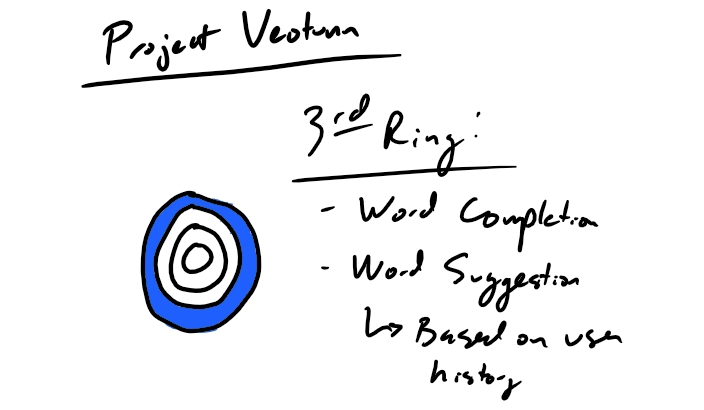 Project Veotunn
3rd Ring:
- Word Completion
- Word Suggestion
↳ Based on user
history